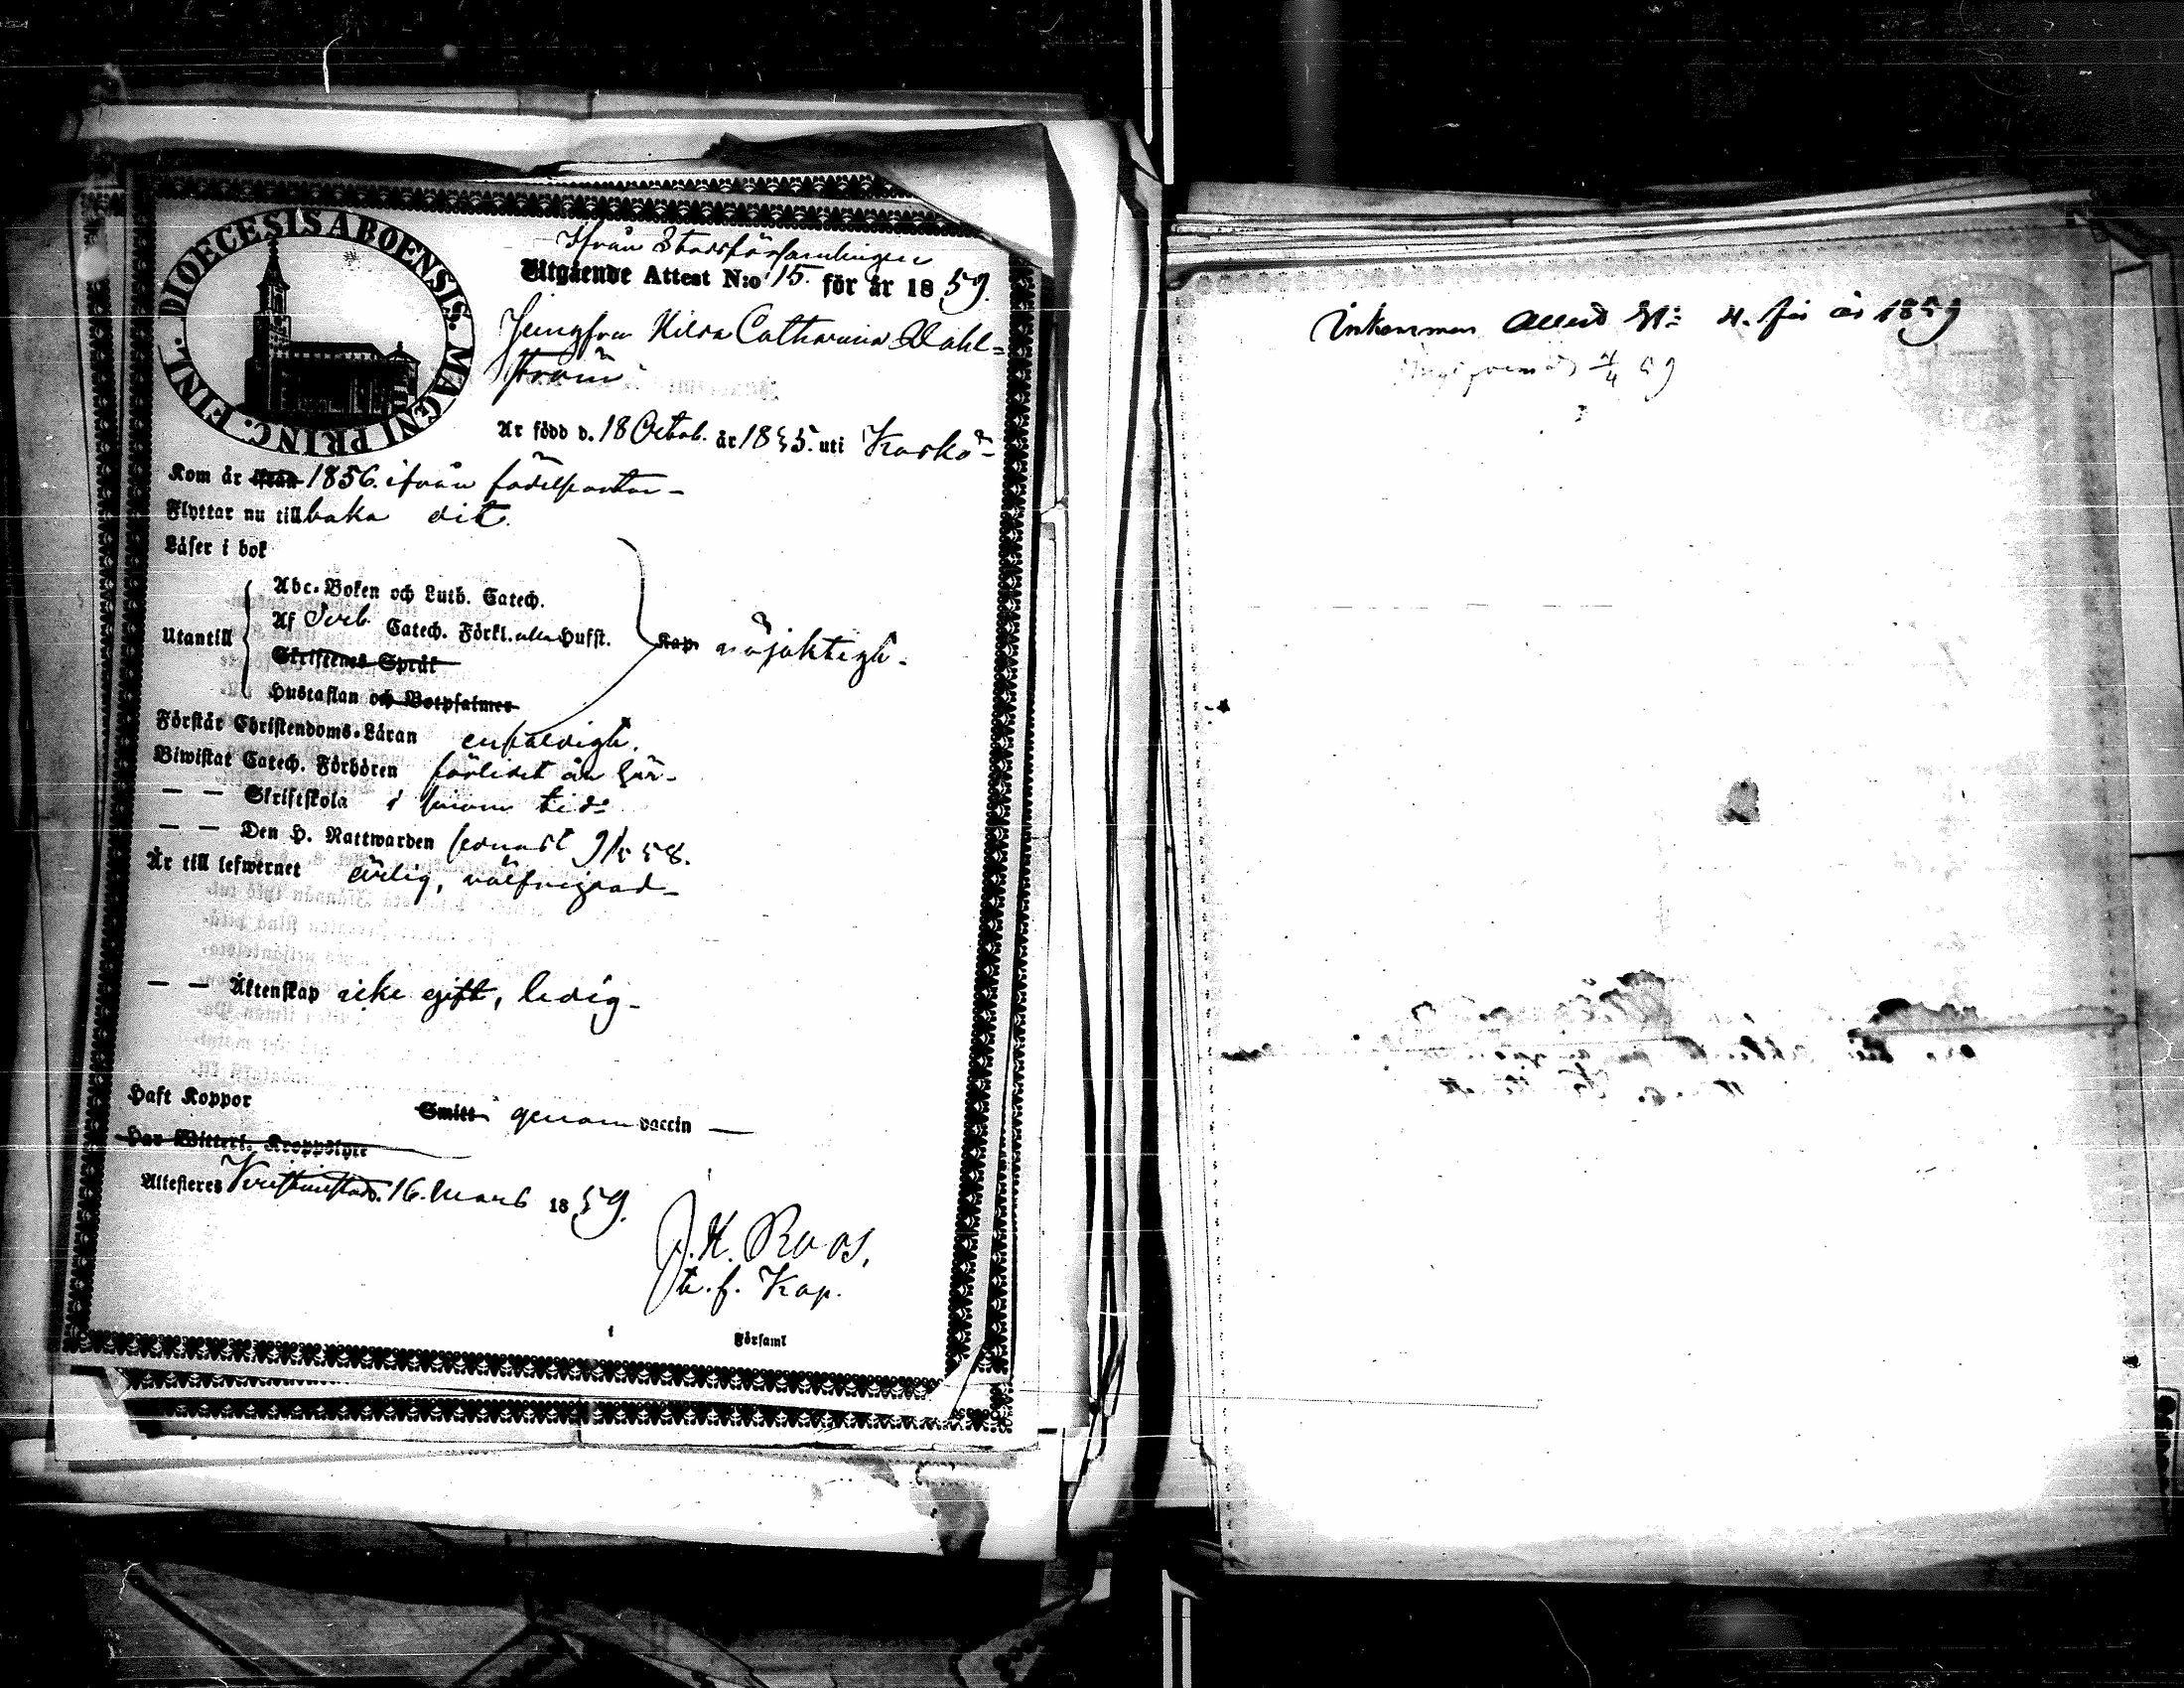 DIOECESIS ABOENSIS. MAGNI PRINC. FINL.
Ifrån Stadsförsamlingen
Utgående Attest N:o 15. för år 1859.
Jungfru Hilda Catharina Dahl=
ström
Är född d. 18 Octob. år 1835. uti Kaskö-
Kom år ifrån 1856. ifrån födelseorten-
Flyttar nu tillbaka dit.
Läser i bok
Utantill
Abc-Boken och Luth. Catech.
Af Sveb. Catech. Förkl. utan Hufst.
Skriftenes Språk
Hustaflan och Botpsalmer
Kap. nöjaktigt.
Förstår Christendoms-Läran enfaldigt.
Biwistat Catech. Förhören förlidet år här-
— — Skriftskola i sinom tid.
— — Den H. Nattwarden senast 9/5 58.
Är till lefwernet ärlig, välfrejdad-
— — Äktenskap icke gift, ledig-
Haft Koppor Smitt genom vaccin —
Har Witterl. Kroppslyte
Attesteres Kristinestad. 16. Mars 1859.
J. H. Roos,
t. f. Kap.
i Församl
Inkommen Attest N: 4. för år 1859
4/4 59